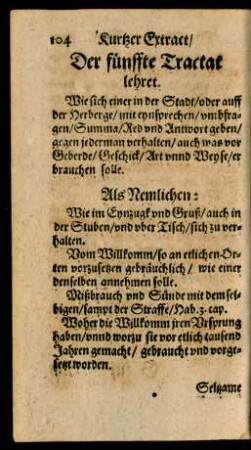 104 Kurtzer Extract/
Der fünffte Tractat
lehret.
Wie sich einer in der Stadt/ oder auff
der Herberge/ mit eynsprechen/ vmbfra-
gen/ Summa/ Red vnd Antwort geben/
gegen jederman verhalten/ auch was vor
Geberde/ Geschick/ Art vnnd Weyse/ er
brauchen solle.
Als Nemlichen:
Wie im Eynzugk vnd Gruß/ auch in
der Stuben/ vnd vber Tisch/ sich zu ver-
halten.
Vom Willkomm/ so an etlichen Or-
ten vorzusetzen gebräuchlich/ wie einer
denselben annehmen solle.
Mißbrauch vnd Sünde mit demsel-
bigen/ sampt der Straffe/ Hab. 3. cap.
Woher die Willkomm jren Vrsprung
haben/ vnnd worzu sie vor etlich tausend
Jahren gemacht/ gebraucht vnd vorge-
setzt worden.
Seltzame